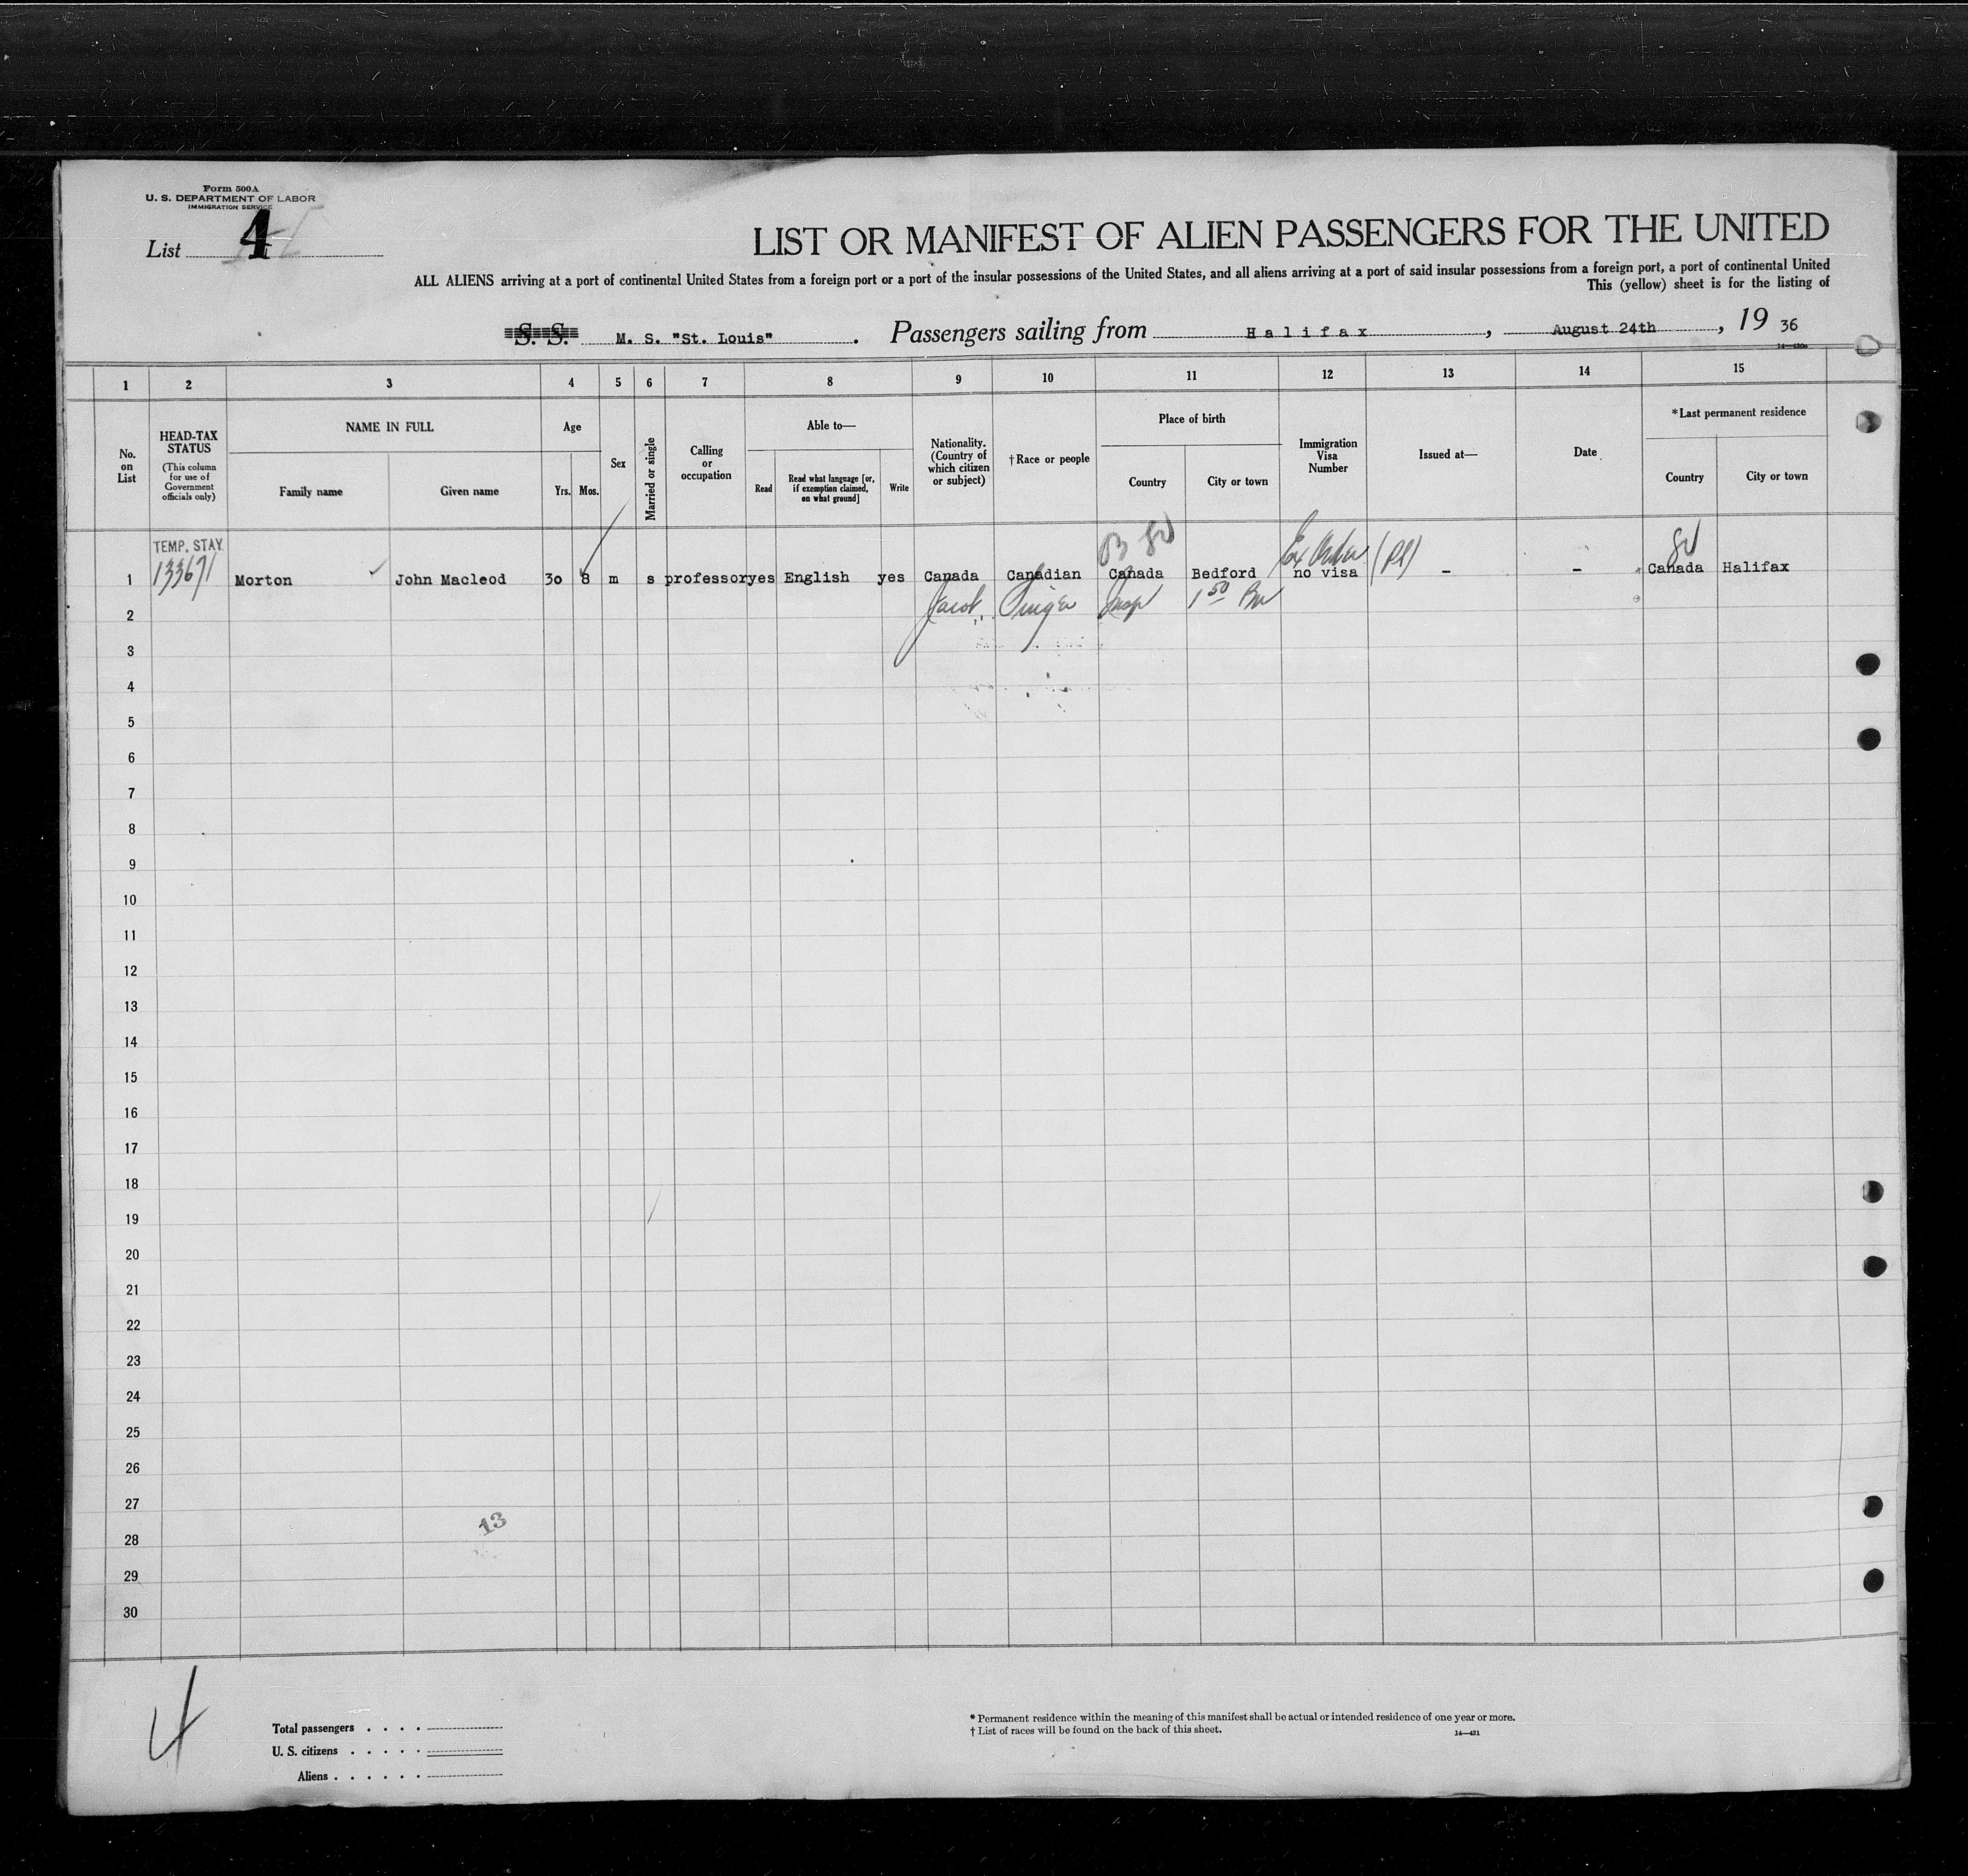 Form 500A
U. S. DEPARTMENT OF LABOR
IMMIGRATION SERVICE
List 4
LIST OR MANIFEST OF ALIEN PASSENGERS FOR THE UNITED
ALL ALIENS arriving at a port of continental United States from a foreign port or a port of the insular possessions of the United States, and all aliens arriving at a port of said insular possessions from a foreign port, a port of continental United
This (yellow) sheet is for the listing of
S. S. M. S. "St. Louis" . Passengers sailing from Halifax , August 24th , 19 36
1 2 3 4 5 6 7 8 9 10 11 12 13 14 15
No. on List
HEAD-TAX STATUS
(This column for use of Government officials only)
NAME IN FULL
Family name
Given name
Age
Yrs.
Mos.
Sex
Married or single
Calling or occupation
Able to—
Read
Read what language [or, if exemption claimed, on what ground]
Write
Nationality. (Country of which citizen or subject)
†Race or people
Place of birth
Country
City or town
Immigration Visa Number
Issued at—
Date
*Last permanent residence
Country
City or town
TEMP. STAY
133671
1 Morton John Macleod 30 8 m s professor yes English yes Canada Canadian Canada Bedford no visa - - Canada Halifax
2
3
4
5
6
7
8
9
10
11
12
13
14
15
16
17
18
19
20
21
22
23
24
25
26
27
13
28
29
30
4
Total passengers . . . .
U. S. citizens . . . . .
Aliens . . . . . .
* Permanent residence within the meaning of this manifest shall be actual or intended residence of one year or more.
† List of races will be found on the back of this sheet.
14—431